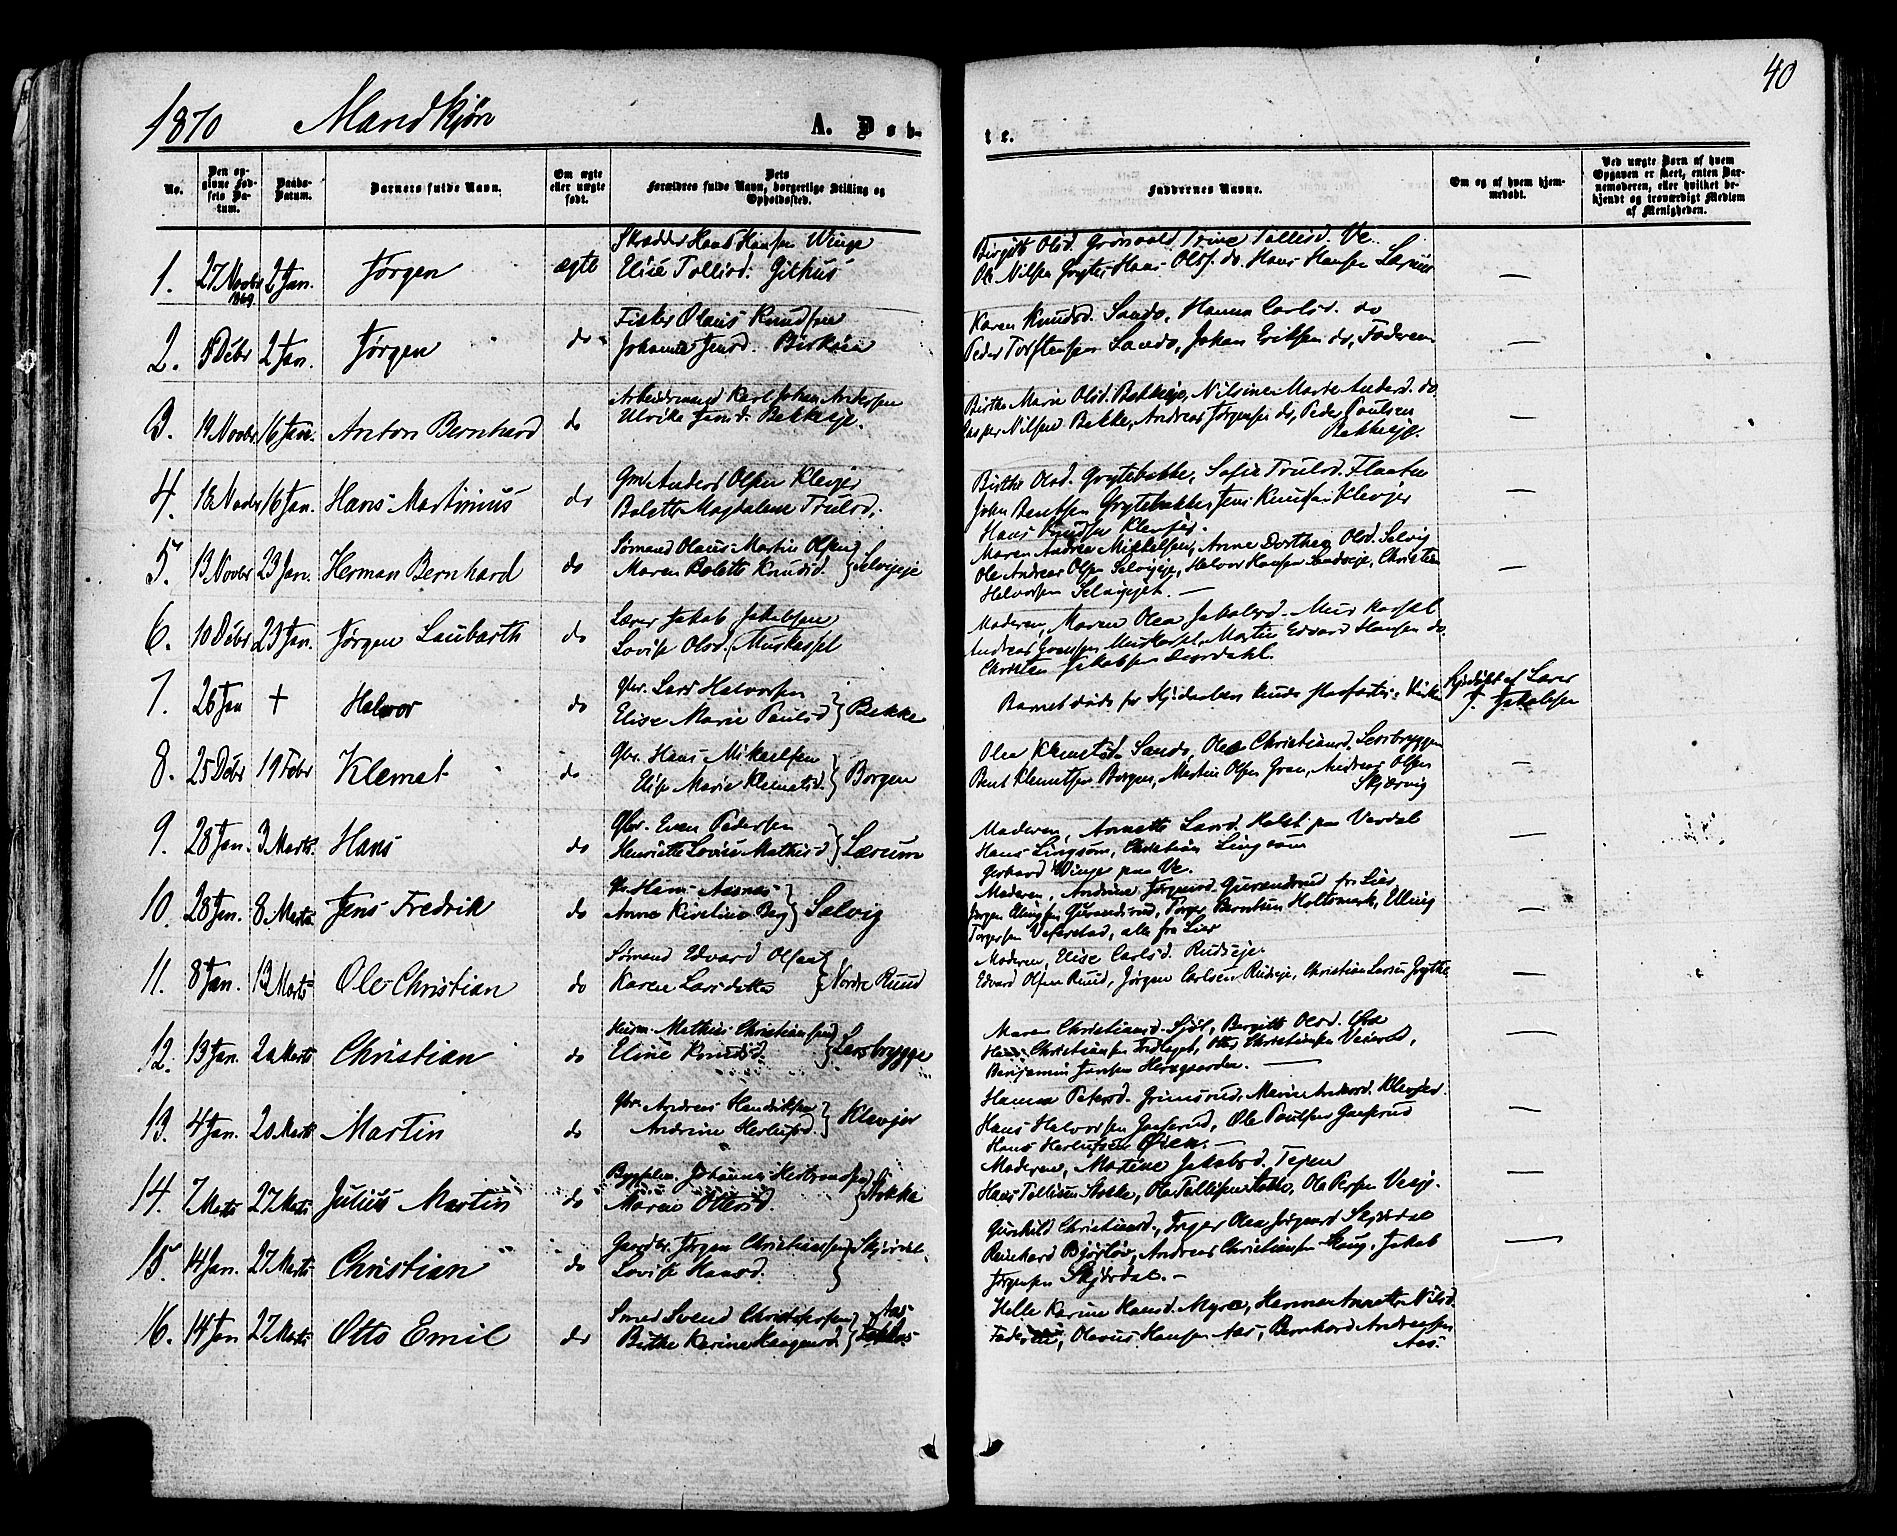 1870 Mandkjøn A. Døb-
40
te.
No.
Den opgivne Fødsels Datum.
Daabs-Datum.
Barnets fulde Navn.
Om ægte eller uægte født.
Dets Forældres fulde Navn, borgerlige Stilling og Opholdssted.
Faddernes Navne.
Om og af hvem hjemmedøbt.
Ved uægte Børn af hvem Opgaven er skeet, enten Barnemoderen, eller hvilket bekjendt og troværdigt Medlem af Menigheden.
1. 27 Novbr 1869 2 Jan. Jørgen ægte Skrædder Hans Hansen Winge
Elise Tollisd. Githus
Birgitte Olsd. Grønvold Trine Tollisd. Ve
Ole Nilsen Hans Olsf. do. Hans Hansen
—
2. 8 Debr 2 Jan. Jørgen do Fisker Olaus Knudsen
Johanne Jensd.
Karen Knudsd. Sando, Hanna Carlsd. do
Peder Torstensen Sando, Johan Eriksen do, Faderen
—
3. 19 Novbr 16 Jan. Anton Bernhard do Arbeidsmand Karl Johan Andersen
Ulrikke Jensd. Bekkeje.
Birthe Marie Olsd. Bekkeje, Nilsine Marte Andersd. do
Casper Nilsen Bekke, Andreas Jørgensen do, Peder Poulsen
Bekkeje.
—
4. 18 Novbr 16 Jan. Hans Martinius do Gm. Anders Olsen Klevjer
Bolette Magdalene Trulsd.
Birthe Olsd. Grytebekke, Sofie Trulsd. Flaaten
John Berntsen Grytebekke, Jens Knudsen Klevjer
Hans Knudsen Klevjer.
—
5. 13 Novbr 23 Jan. Herman Bernhard do Sømand Olaus Martin Olsen
Maren Bolette Knudsd. } Selvigeje
Maren Andrea Mikkelsen, Anne Dorthea Olsd. Selvig
Ole Andreas Olsen Selvigeje, Halvor Hansen Sandseje, Christen
Halvorsen Selvigeje. —
—
6. 10 Debr 23 Jan. Jørgen Laubarth do Lærer Jakob Jakobsen
Lovise Olsd. Muskassel
Moderen, Maren Olea Jakobsd. Muskassel
Andreas Jensen Muskassel, Martin Edvard Hansen do.
Christen Jakobsen
7. 26 Jan + Halvor do Gbr. Lars Halvorsen
Elise Marie Paulsd } Bekke
Barnet døde før Kirken
Hjdøbt af Lærer
J. Jakobsen
8. 25 Debr 19 Febr Klemet do Gbr. Hans Mikkelsen
Elise Marie Klemetsd. } Borgen
Olea Klemetsd. Sando, Olea Christiansd. Lersbryggen
Bent Klemetsen Borgen, Martin Olsen Gran, Andreas Olsen
Skjærvig
—
9. 28 Jan. 3 Marts. Hans do Gbr. Even Pedersen
Henriette Lovise Mathisd } Lærum
Moderen, Annette Larsd. Holst paa Verdal
Hans Lingsom, Christian Lingsom
Gerhard Winger paa Ve.
—
10. 28 Jan. 8 Marts Jens Fredrik do Hans Aasnes
Anne Berg } Selvig
Moderen, Andrine Jørgensd. Gunnerud fra Lier
Jørgen Holtsmark,
Torgersen alle fra Lier
—
11. 8 Jan. 13 Marts Ole Christian do Sømand Edvard Olsen
Karen Larsdatter } Nordre Ruud
Moderen, Elise Carlsd. Rudseje.
Edvard Olsen Ruud, Jørgen Carlsen Rudseje, Christian Larsen Gryte
—
12. 13 Jan. 20 Marts Christian do Husm. Mathias Christiansen
Eline Knudsd. } Lersbrygge
Maren Christiansd. Sjøl, Bergitte Olsd. Øra
Hans Christiansen Otto Christiansen
Benjamin Jensen —
—
13. 4 Jan. 20 Marts Martin do Gbr. Andreas Hendriksen
Andrine Herlufsd. } Klevjer
Hanna Petersd. Grimsrud, Marie Andersd. Klevjer.
Hans Halvorsen Gaserud, Ole Paulsen Gaserud
Hans Herlufsen Øien. —
—
14. 7 Marts 27 Marts Julius Martin do Johannes
Maren Ottersd. } Stokke
Moderen, Martine Jakobsd. Tejen
Hans Tollisen Stokke, Ole Tollisen Ole Persen Veeje.
—
15. 14 Jan. 27 Marts Christian do Gaardbr. Jørgen Christiansen Skjørdal
Lovise Hansd. }
Gunhild Christiansd., Inger Olea Jørgensd. Skjørdal
Reinhard Bjørløv, Andreas Christiansen Haug, Jakob
Jørgensen Skjørdal. —
—
16. 14 Jan 27 Marts Otto Emil do Smed Svend Christophersen
Birthe Karine Haagensd. } Aas
Helle Karine Hansd. Myra, Hanna Annette Nilsd.
Faderen, Olavus Hansen Aas, Bernhard Andersen
Aas.